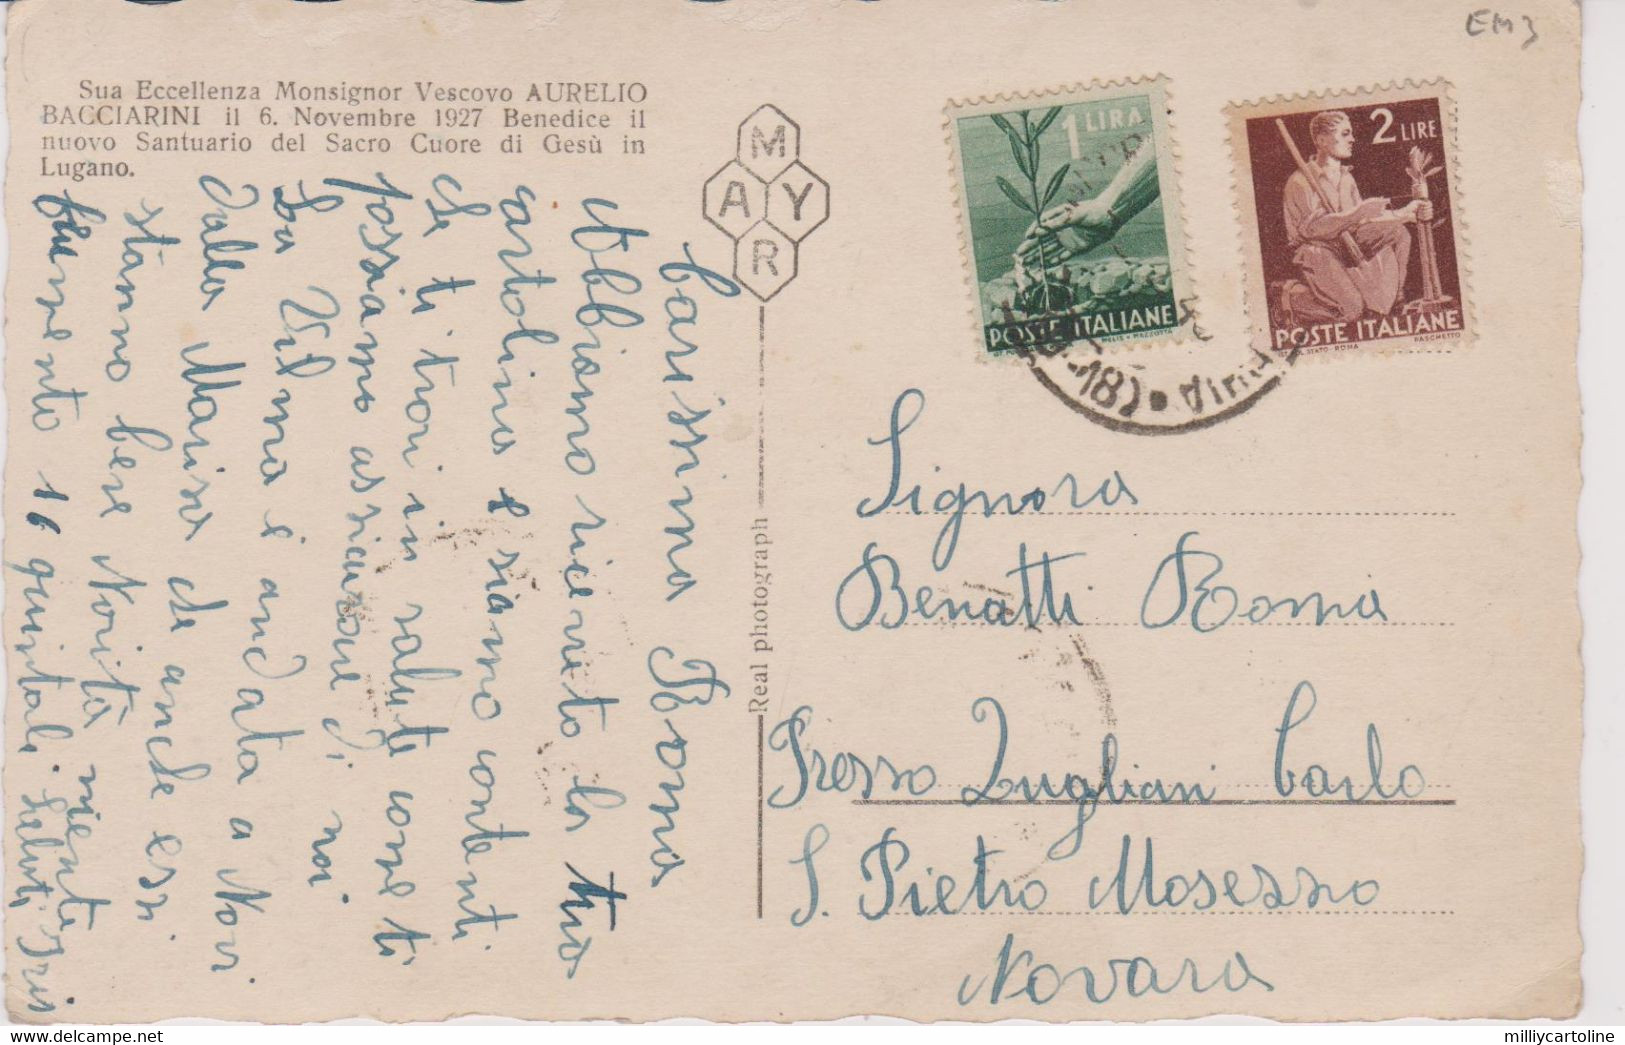 EM3
Sua Eccellenza Monsignor Vescovo AURELIO
BACCIARINI il 6. Novembre 1927 Benedice il
nuovo Santuario del Sacro Cuore di Gesù in
Lugano.
M
A Y
R
Real photograph
1 LIRA
POSTE ITALIANE
2 LIRE
POSTE ITALIANE
IST. POL. STATO - ROMA PASCHETTO
Carissima Roma
Abbiamo ricevuto la tua
cartolina e siamo contenti
che ti trovi in salute come ti
possiamo assicurare di noi
La Vilma è andata a Novi
dalla Marisa che anche essi
stanno bene Novità niente
frumento 16 quintali. Saluti Iris
Signora
Benatti Roma
Presso Zugliani Carlo
S. Pietro Mosezzo
Novara
millycartoline